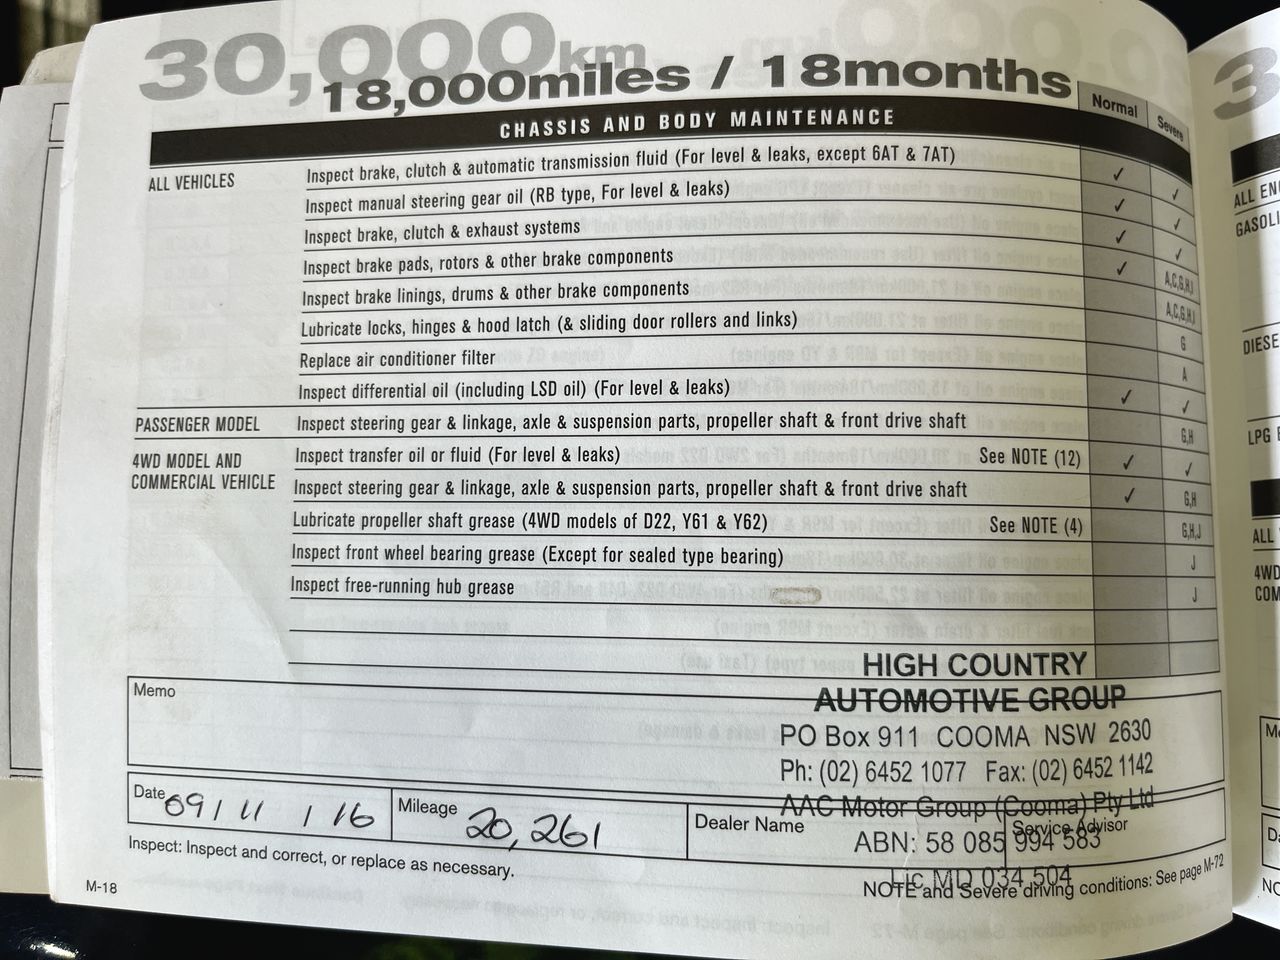 30,000km
18,000miles / 18months
Normal
Severe
CHASSIS AND BODY MAINTENANCE
ALL VEHICLES
Inspect brake, clutch & automatic transmission fluid (For level & leaks, except 6AT & 7AT) ✓ ✓
Inspect manual steering gear oil (RB type, For level & leaks) ✓ ✓
Inspect brake, clutch & exhaust systems ✓ ✓
Inspect brake pads, rotors & other brake components ✓ A,C,G,H,I
Inspect brake linings, drums & other brake components A,C,G,H,I
Lubricate locks, hinges & hood latch (& sliding door rollers and links) G
Replace air conditioner filter A
Inspect differential oil (including LSD oil) (For level & leaks) ✓ ✓
PASSENGER MODEL Inspect steering gear & linkage, axle & suspension parts, propeller shaft & front drive shaft G,H
4WD MODEL AND
COMMERCIAL VEHICLE
Inspect transfer oil or fluid (For level & leaks) See NOTE (12) ✓ ✓
Inspect steering gear & linkage, axle & suspension parts, propeller shaft & front drive shaft ✓ G,H
Lubricate propeller shaft grease (4WD models of D22, Y61 & Y62) See NOTE (4) G,H,J
Inspect front wheel bearing grease (Except for sealed type bearing) J
Inspect free-running hub grease J
Memo
HIGH COUNTRY
AUTOMOTIVE GROUP
PO Box 911 COOMA NSW 2630
Ph: (02) 6452 1077 Fax: (02) 6452 1142
AAC Motor Group (Cooma) Pty Ltd
ABN: 58 085 994 583
Lic MD 034 504
Date 09/11/16
Mileage 20,261
Dealer Name
Service Advisor
Inspect: Inspect and correct, or replace as necessary.
NOTE and Severe driving conditions: See page M-72
M-18
3
ALL
4WD
LPG